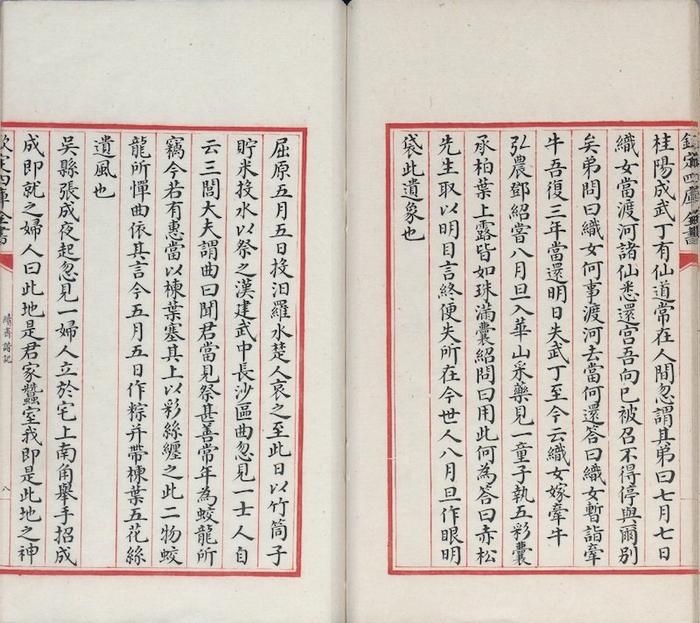 欽定四庫全書
桂陽成武丁有仙道常在人間忽謂其弟曰七月七日
織女當渡河諸仙悉還宫吾向已被召不得停與爾别
矣弟問曰織女何事渡河去當何還答曰織女暫詣牽
牛吾復三年當還明日失武丁至今云織女嫁牽牛
弘農鄧紹嘗八月旦入華山采藥見一童子執五彩囊
承柏葉上露皆如珠滿囊紹問曰用此何為答曰赤松
先生取以明目言終便失所在今世人八月旦作眼明
袋此遺象也
屈原五月五日投汨羅水楚人哀之至此日以竹筒子
貯米投水以祭之漢建武中長沙區曲忽見一士人自
云三閭大夫謂曲曰聞君當見祭甚善常年為蛟龍所
竊今若有惠當以楝葉塞其上以彩絲纏之此二物蛟
龍所憚曲依其言今五月五日作粽并帶楝葉五花絲
遺風也
吳縣張成夜起忽見一婦人立於宅上南角舉手招成
成即就之婦人曰此地是君家蠶室我即是此地之神
欽定四庫全書
續齊諧記
八